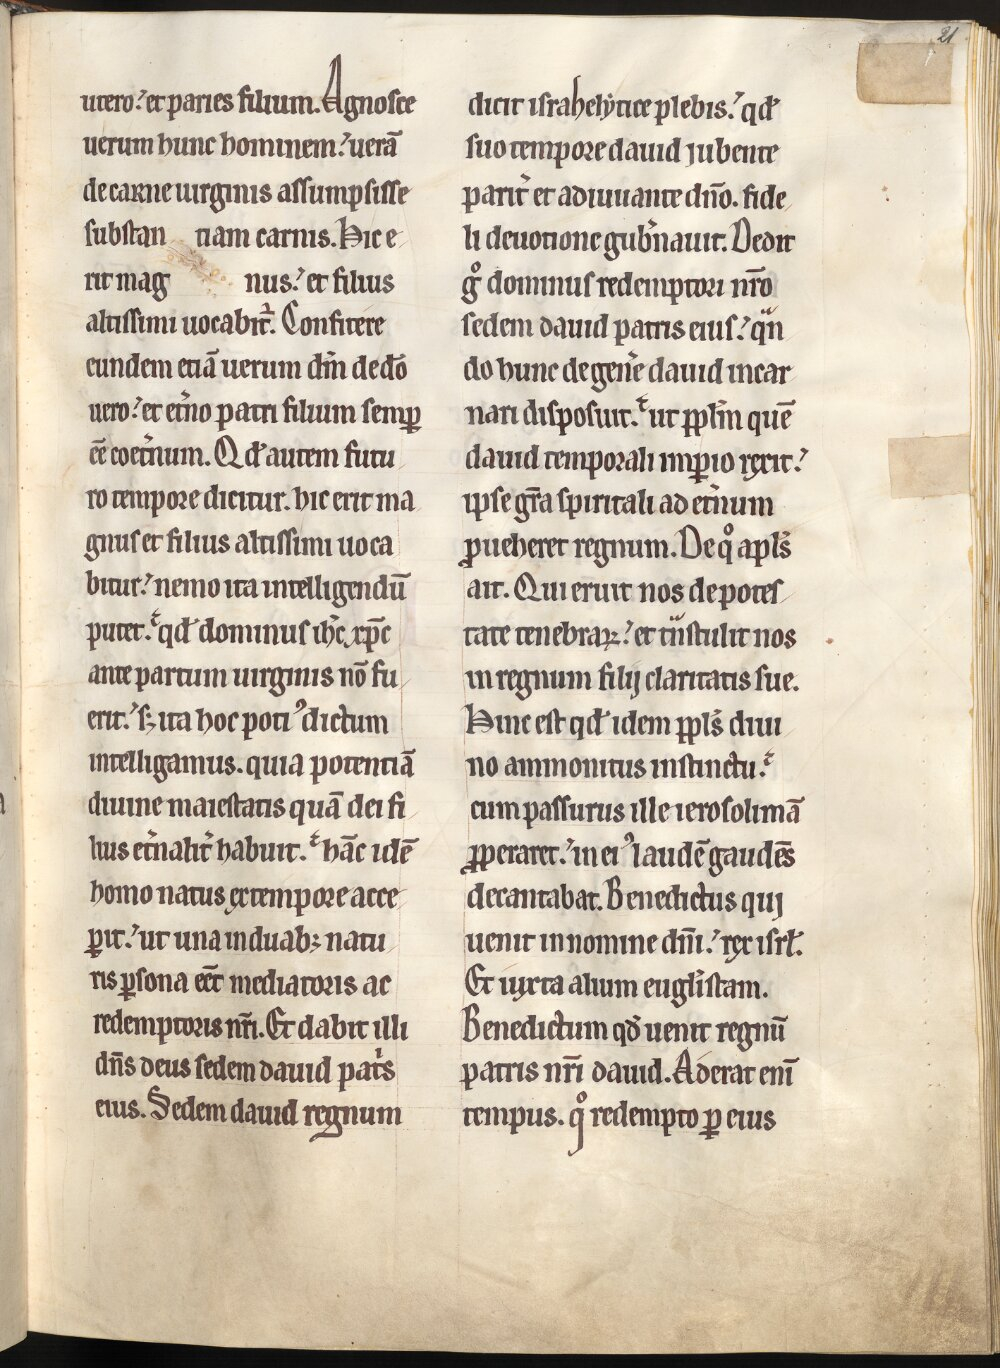 21
utero? et paries filium. Agnosce
uerum hunc hominem? uerā
de carne uirginis assumpsisse
substan tiam carnis. Hic e
rit mag nus? et filius
altissimi uocabit̄. Confitere
eundem etiā uerum dm̄ de dō
uero? et et̄no patri filium semꝑ
eē coet̄num. Qđ autem futu
ro tempore dicitur. hic erit ma
gnus et filius altissimi uoca
bitur? nemo ita intelligendū
putet. qđ dominus ih̄c xp̄c
ante partum uirginis nō fu
erit? sꝫ ita hoc potiꝰ dictum
intelligamus. quia potentiā
diuine maiestatis quā dei fi
lius et̄nalit̄ habuit. hāc idē
homo natus ex tempore acce
ꝑit? ut una in duabꝫ natu
ris ꝑsona eēt mediatoris ac
redemptoris nr̄i. Et dabit illi
dn̄s deus sedem dauid pat̄s
eius. Sedem dauid regnum
dicit israhelytice plebis? qđ
suo tempore dauid iubente
parit̄ et adiuuante dn̄o. fide
li deuotione gub̄nauit. Dedit
gͦ dominus redemptori nr̄o
sedem dauid patris eius? qn̄
do hunc de gen̄e dauid incar
nari disposuit. ut ppl̄m quē
dauid temporali imꝑio rexit?
ipse gr̄a spiritali ad et̄num
ꝓueheret regnum. De qͦ apl̄s
ait. Qui eruit nos de potes
tate tenebraꝝ? et tn̄stulit nos
in regnum filij claritatis sue.
Hinc est qđ idem ppl̄s diui
no ammonitus instinctu.
cum passurus ille ierosolimā
ꝓperaret? in eiꝰ laudē gaudēs
decantabat. Benedictus qui
uenit in nomine dn̄i? rex isrł.
Et iuxta alium eugl̄istam.
Benedictum qđ uenit regnū
patris nr̄i dauid. Aderat enī
tempus. qͦ redempto ꝑ eius